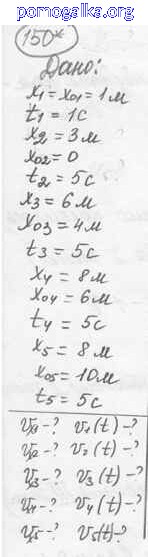 pomogalka.org
150*
Дано:
x₁ = x₀₁ = 1 м
t₁ = 1 с
x₂ = 3 м
x₀₂ = 0
t₂ = 5 с
x₃ = 6 м
x₀₃ = 4 м
t₃ = 5 с
x₄ = 8 м
x₀₄ = 6 м
t₄ = 5 с
x₅ = 8 м
x₀₅ = 10 м
t₅ = 5 с
v₁ - ? v₁(t) - ?
v₂ - ? v₂(t) - ?
v₃ - ? v₃(t) - ?
v₄ - ? v₄(t) - ?
v₅ - ? v₅(t) - ?